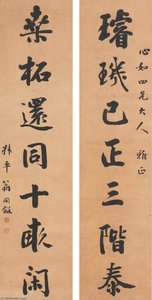 心如四兄大人 雅正
璿璣已正三階泰
桑柘還同十畝閑
叔平翁同龢